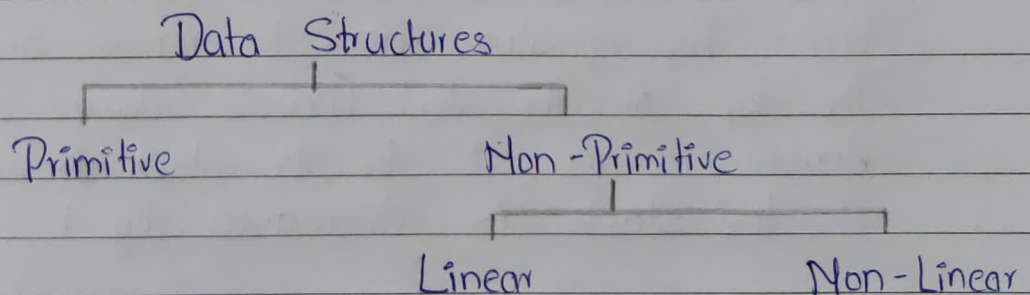 Data Structures
Primitive Non-Primitive
Linear Non-Linear